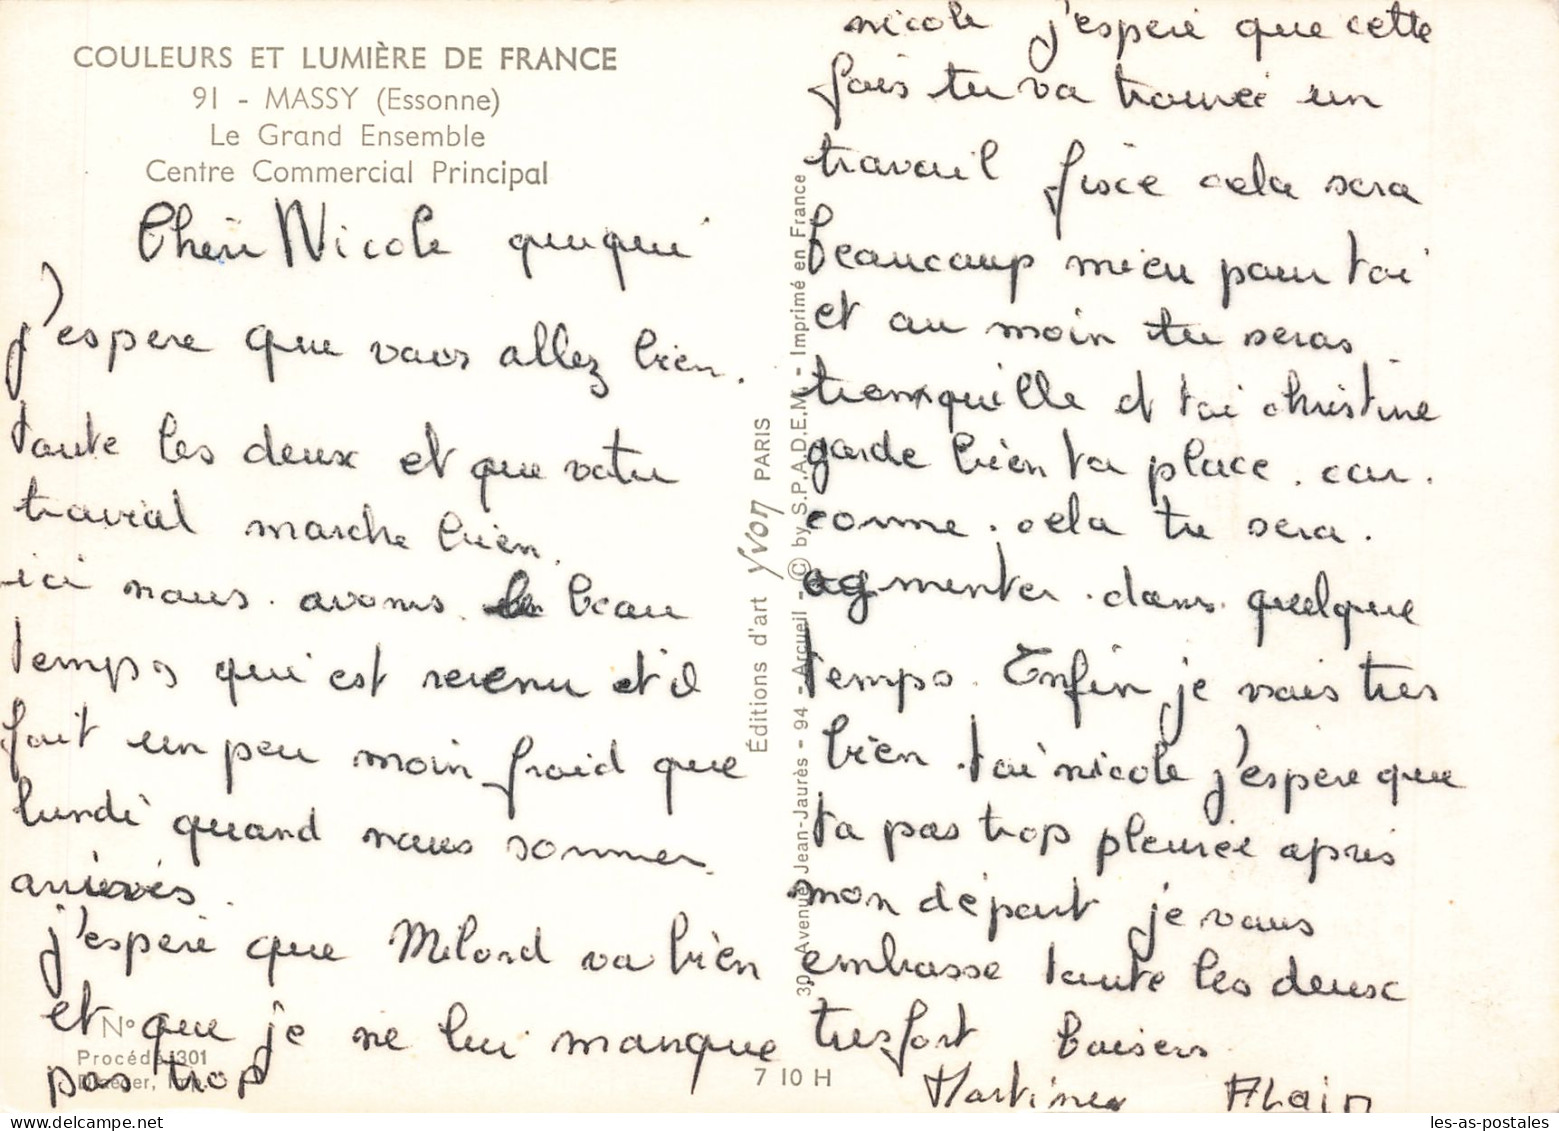 COULEURS ET LUMIÈRE DE FRANCE
91 - MASSY (Essonne)
Le Grand Ensemble
Centre Commercial Principal
Chéri Nicole
j'espere que vous allez bien.
toute les deux et que votre
travial marche bien.
ici nous avons le beau
temps qui est revenu et il
fait un peu moin froid que
lundi quand nous sommes
arrivés.
j'espère que Milord va bien
et que je ne lui manque
pas trop
N°
Procédé 301
Draeger, Imp.
Éditions d'art Yvon PARIS
30, Avenue Jean-Jaurès - 94 - Arcueil - © by S.P.A.D.E.M. - Imprimé en France
7 10 H
nicole j'espère que cette
fois tu va trouvée un
travail fisce cela sera
beaucoup mieu pour toi
et au moin tu seras
tranquille et toi christine
garde bien ta place. car.
comme. cela tu sera.
ogmenter. dans quelque
temps. Enfin je vais tres
bien. toi nicole j'espere que
ta pas trop pleurée après
mon départ je vous
embrasse toute les deux
tres fort baisers
Martine Alain
les-as-postales